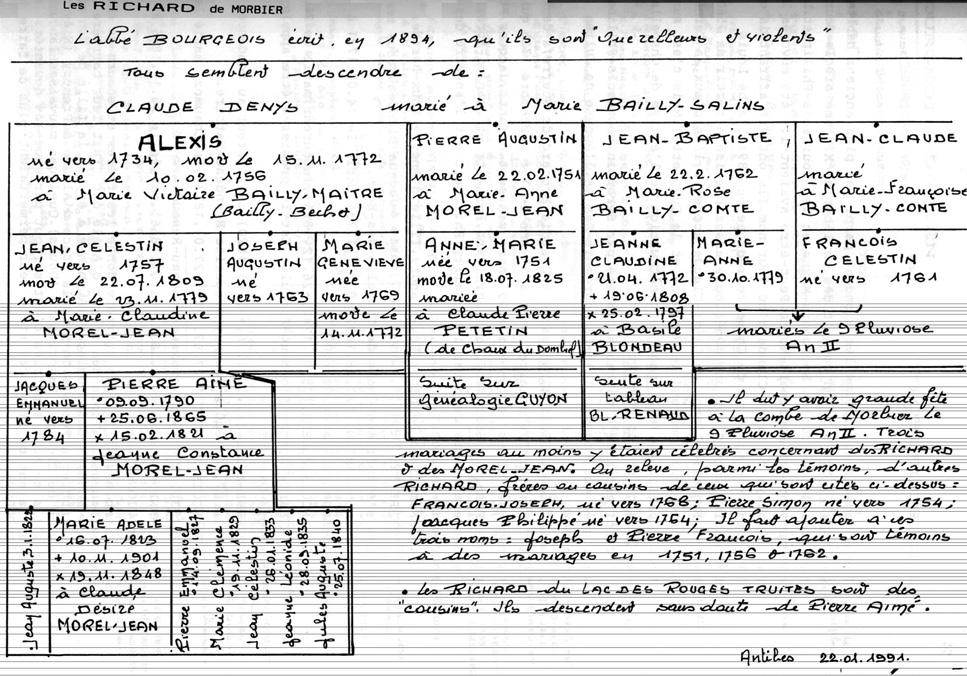 Les RICHARD de MORBIER
L'abbé BOURGEOIS écrit, en 1894, qu'ils sont "Querelleurs et violents"
Tous semblent descendre de :
CLAUDE DENYS marié à Marie BAILLY-SALINS
ALEXIS
né vers 1734, mort le 15.11.1772
marié le 10.02.1756
à Marie Victoire BAILLY-MAITRE
(Bailly-Bechet)
PIERRE AUGUSTIN
marié le 22.02.1751
à Marie-Anne
MOREL-JEAN
JEAN-BAPTISTE,
marié le 22.2.1762
à Marie-Rose
BAILLY-COMTE
JEAN-CLAUDE
marié
à Marie-Françoise
BAILLY-CONTE
JEAN-CELESTIN
né vers 1757
mort le 22.07.1809
marié le 23.11.1779
à Marie-Claudine
MOREL-JEAN
JOSEPH
AUGUSTIN
né
vers 1763
MARIE
GENEVIEVE
née
vers 1769
morte le
14.11.1772
ANNE-MARIE
née vers 1751
morte le 18.07.1825
mariée
à Claude Pierre
PETETIN
(de Chaux du Dombief)
JEANNE
CLAUDINE
°21.04.1772
+ 19.06.1808
x 25.02.1797
à Basile
BLONDEAU
MARIE-
ANNE
°30.10.1779
FRANCOIS
CELESTIN
né vers 1761
mariés le 9 Pluviose
An II
JACQUES
EMMANUEL
né vers
1784
PIERRE AIMÉ
°09.09.1790
+ 25.06.1865
x 15.02.1821 à
Jeanne Constance
MOREL-JEAN
Suite sur
généalogie GUYON
Suite sur
tableau
BL-RENAUD
• Il dut y avoir grande fête
à la Combe de Morbier le
9 Pluviose An II. Trois
mariages au moins y étaient célébrés concernant des RICHARD
& des MOREL-JEAN. On relève, parmi les témoins, d'autres
RICHARD, frères ou cousins de ceux qui sont cités ci-dessus :
FRANCOIS-JOSEPH, né vers 1768; Pierre Simon né vers 1754;
Jacques Philippe né vers 1764; Il faut ajouter à ces
trois noms : Joseph et Pierre Francois, qui sont témoins
à des mariages en 1751, 1756 & 1762.
• Les RICHARD du LAC DES ROUGES TRUITES sont des
"cousins". Ils descendent sans doute de Pierre Aimé.
Jean Auguste 3.1.1822
MARIE ADELE
°16.07.1823
+ 10.11.1901
x 19.11.1848
à Claude
Désiré
MOREL-JEAN
Pierre Emmanuel
°14.09.1827
Marie Clémence
°19.11.1829
Jean Célestin
°26.01.1833
Jeanne Léonide
°28.09.1835
Jules Auguste
°25.07.1840
Antibes 22.01.1991.